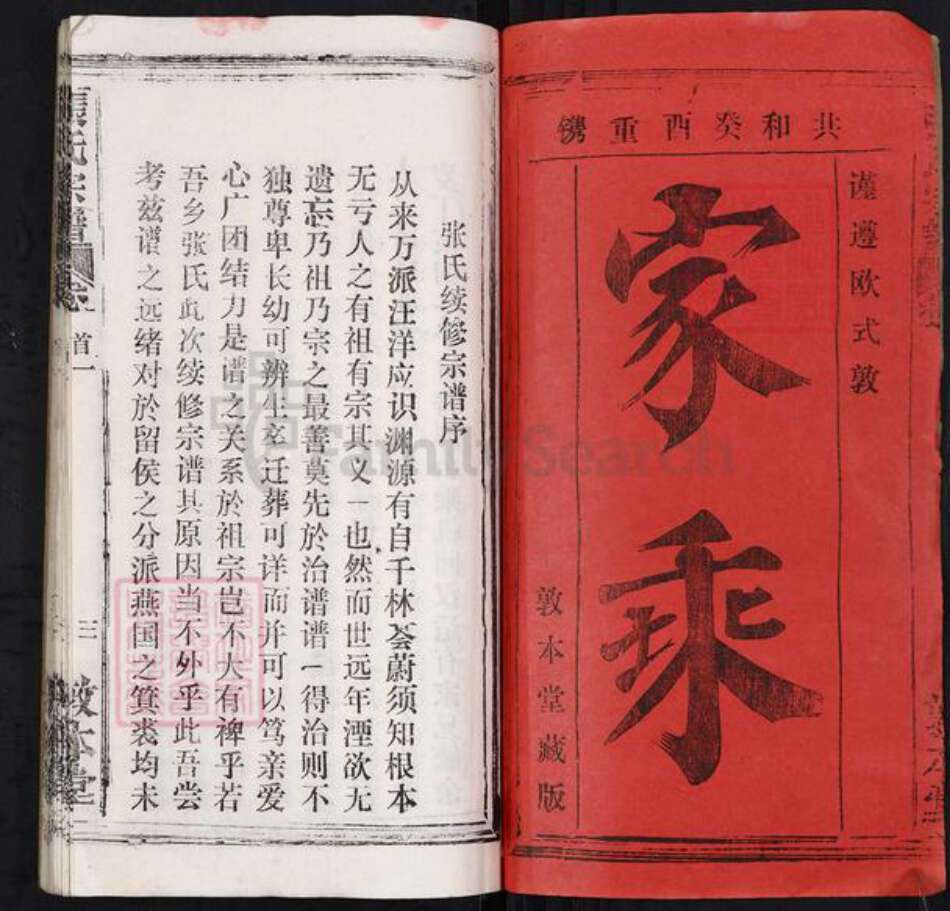 共和癸酉重镌
谨遵欧式敦
家乘
敦本堂藏版
张氏续修宗谱序
从来万派汪洋应识渊源有自千林荟蔚须知根本
无亏人之有祖有宗其义一也然而世远年湮欲无
遗忘乃祖乃宗之最善莫先於治谱谱一得治则不
独尊卑长幼可辨生卒迁葬可详而并可以笃亲爱
心广团结力是谱之关系於祖宗岂不大有裨乎若
吾乡张氏此次续修宗谱其原因当不外乎此吾尝
考兹谱之远绪对於留侯之分派燕国之箕裘均未
張氏宗譜
卷
首一
三
敦本堂
FamilySearch